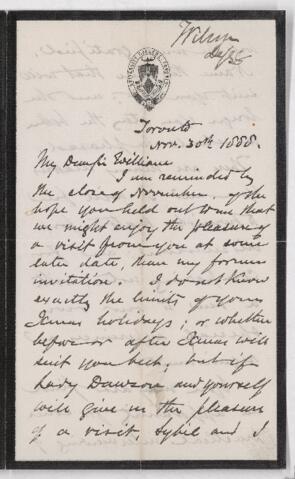 Wilson
UNIVERSITY COLLEGE, TORONTO
Toronto
Nov. 30th 1888.
My Dear Sir William
I am reminded by
the close of November, of the
hope you held out to me that
we might enjoy the pleasure of
a visit from you at some
later date, than my former
invitation. I do not know
exactly the limits of your
Xmas holidays; or whether
before or after Xmas will
suit you best; but if
Lady Dawson and yourself
will give us the pleasure
of a visit, Sybil and I